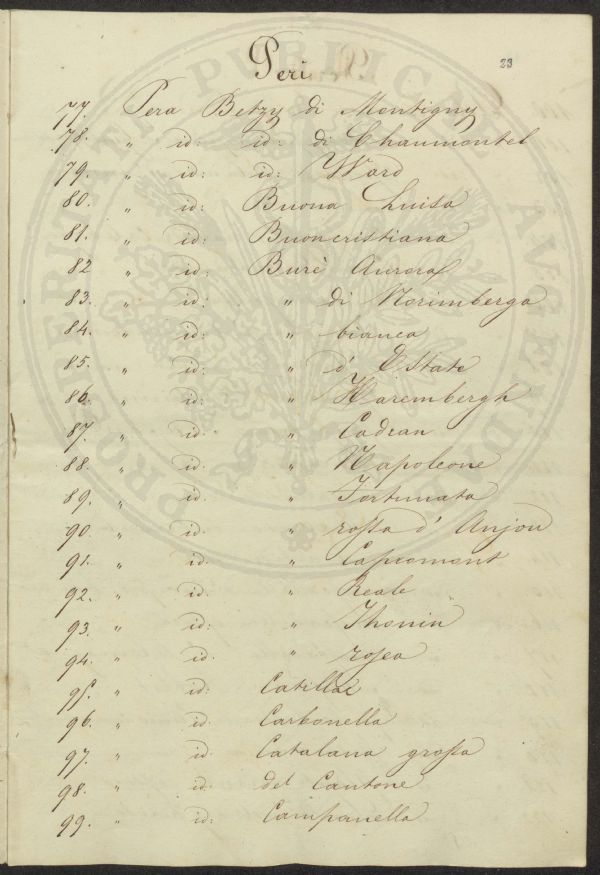 Peri
23
77. Pera Betzy di Montigny
78. " id: id: di Chaumontel
79. " id: id: Ward
80. " id: Buona Luisa
81. " id: Buoncristiana
82 " id: Burè Aurora
83. " id: " di Norimberga
84. " id: " bianca
85. " id: " d' Estate
86. " id: " Harembergh
87. " id. " Cadran
88. " id. " Napoleone
89. " id. " Fortunata
90. " id. " rossa d' Anjou
91. " id. " Capiomont
92. " id. " Reale
93. " id: " Thouin
94. " id. " rosea
95. " id: Catillac
96. " id. Carbonella
97. " id. Catalana grossa
98. " id. del Cantone
99. " id: Campanella
PROSPERITATI PVBLICAE AVGENDAE